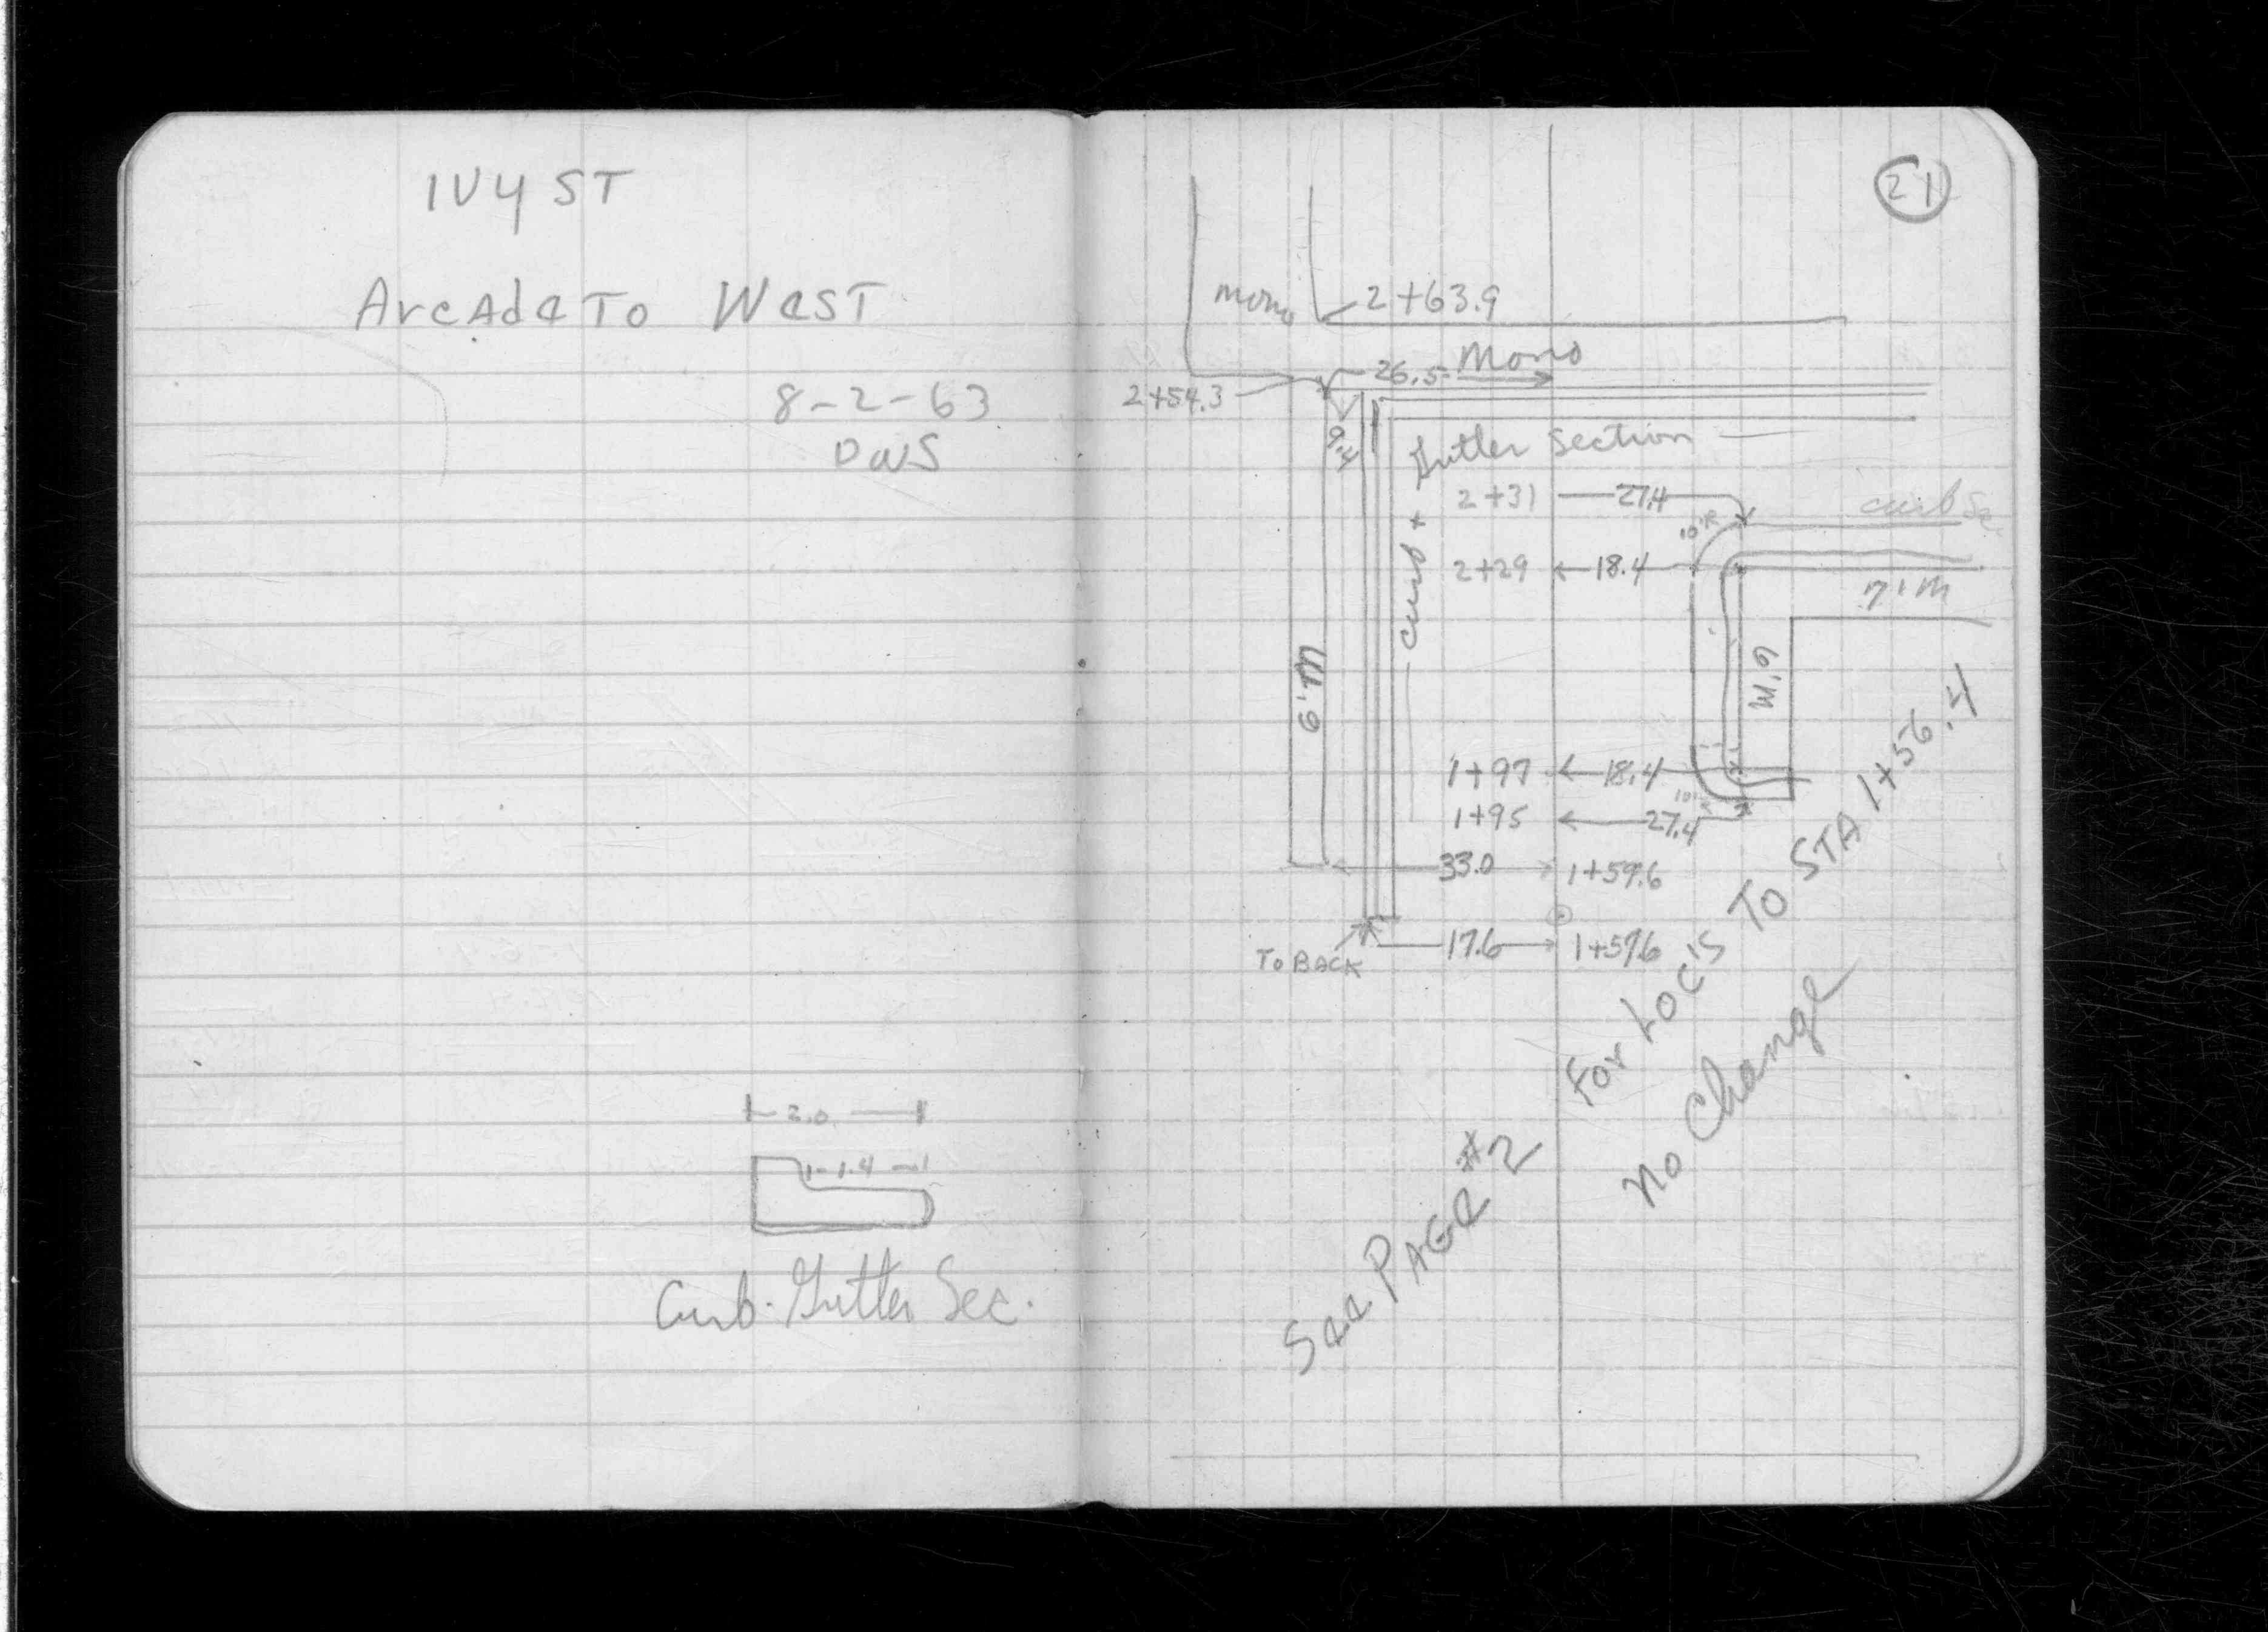 IVY ST
Arcade To West
8-2-63
DWS
2.0
1.4
Curb-Gutter Sec.
21
mono
2+63.9
26.5 Mono
2+54.3
9.4
curb + Gutter Section
2+31 27.4
10'R
curb Se
2+29 18.4
7'M
6'M
6'M
1+97 18.4
10'R
1+95 27.4
33.0 1+59.6
17.6 1+57.6
To BACK
See PAGE #2 For Loc'S To STA 1+56.4
No Change